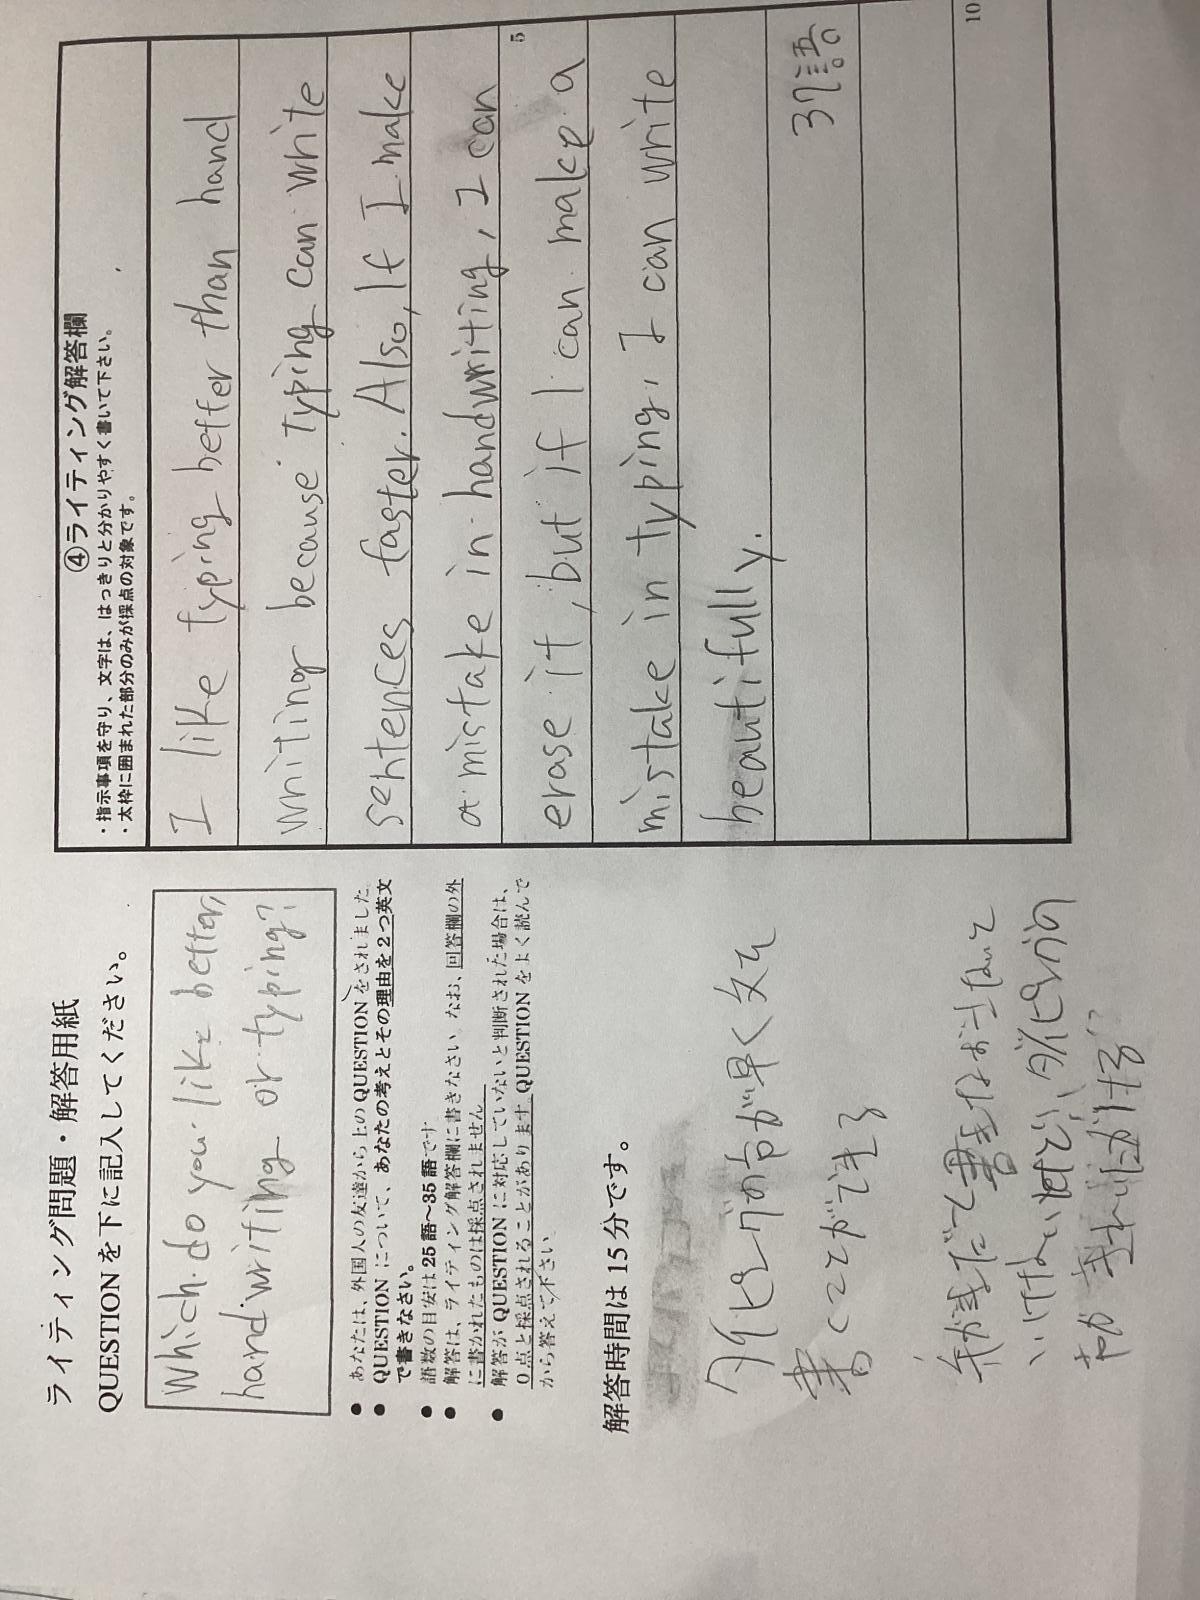 ライティング問題・解答用紙
QUESTIONを下に記入してください。
Which do you like better,
handwriting or typing?
● あなたは、外国人の友達から上のQUESTIONをされました。
● QUESTIONについて、あなたの考えとその理由を2つ英文
で書きなさい。
● 語数の目安は25語～35語です。
● 解答は、ライティング解答欄に書きなさい。なお、回答欄の外
に書かれたものは採点されません。
● 解答がQUESTIONに対応していないと判断された場合は、
0点と採点されることがあります。QUESTIONをよく読んで
から答えて下さい。
解答時間は15分です。
タイピングの方が早く文を
書くことができる
紙だと書きなおさなくて
いけないけど、タイピングの
④ライティング解答欄
・指示事項を守り、文字は、はっきりと分かりやすく書いて下さい。
・太枠に囲まれた部分のみが採点の対象です。
I like typing better than hand
writing because typing can write
sentences faster. Also, If I make
a mistake in handwriting, I can
erase it, but if I can make a
5
mistake in typing, I can write
beautifully.
37語
10